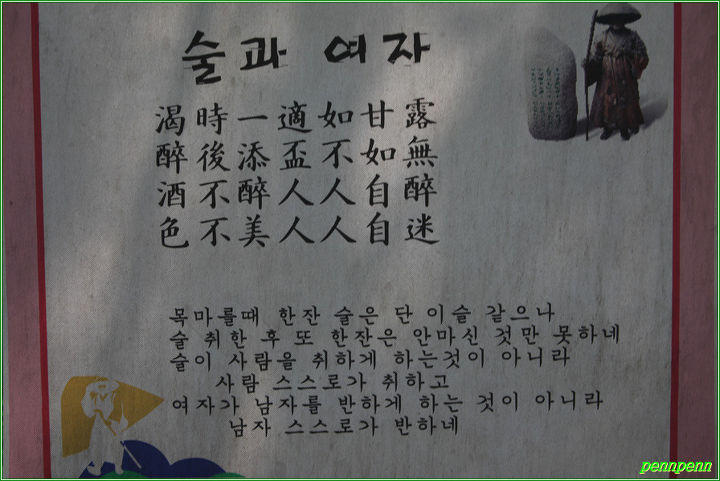 술과 여자
渴時一適如甘露
醉後添盃不如無
酒不醉人人自醉
色不美人人自迷
목마를때 한잔 술은 단 이슬 같으나
술 취한 후 또 한잔은 안마신 것만 못하네
술이 사람을 취하게 하는것이 아니라
사람 스스로가 취하고
여자가 남자를 반하게 하는 것이 아니라
남자 스스로가 반하네
pennpenn